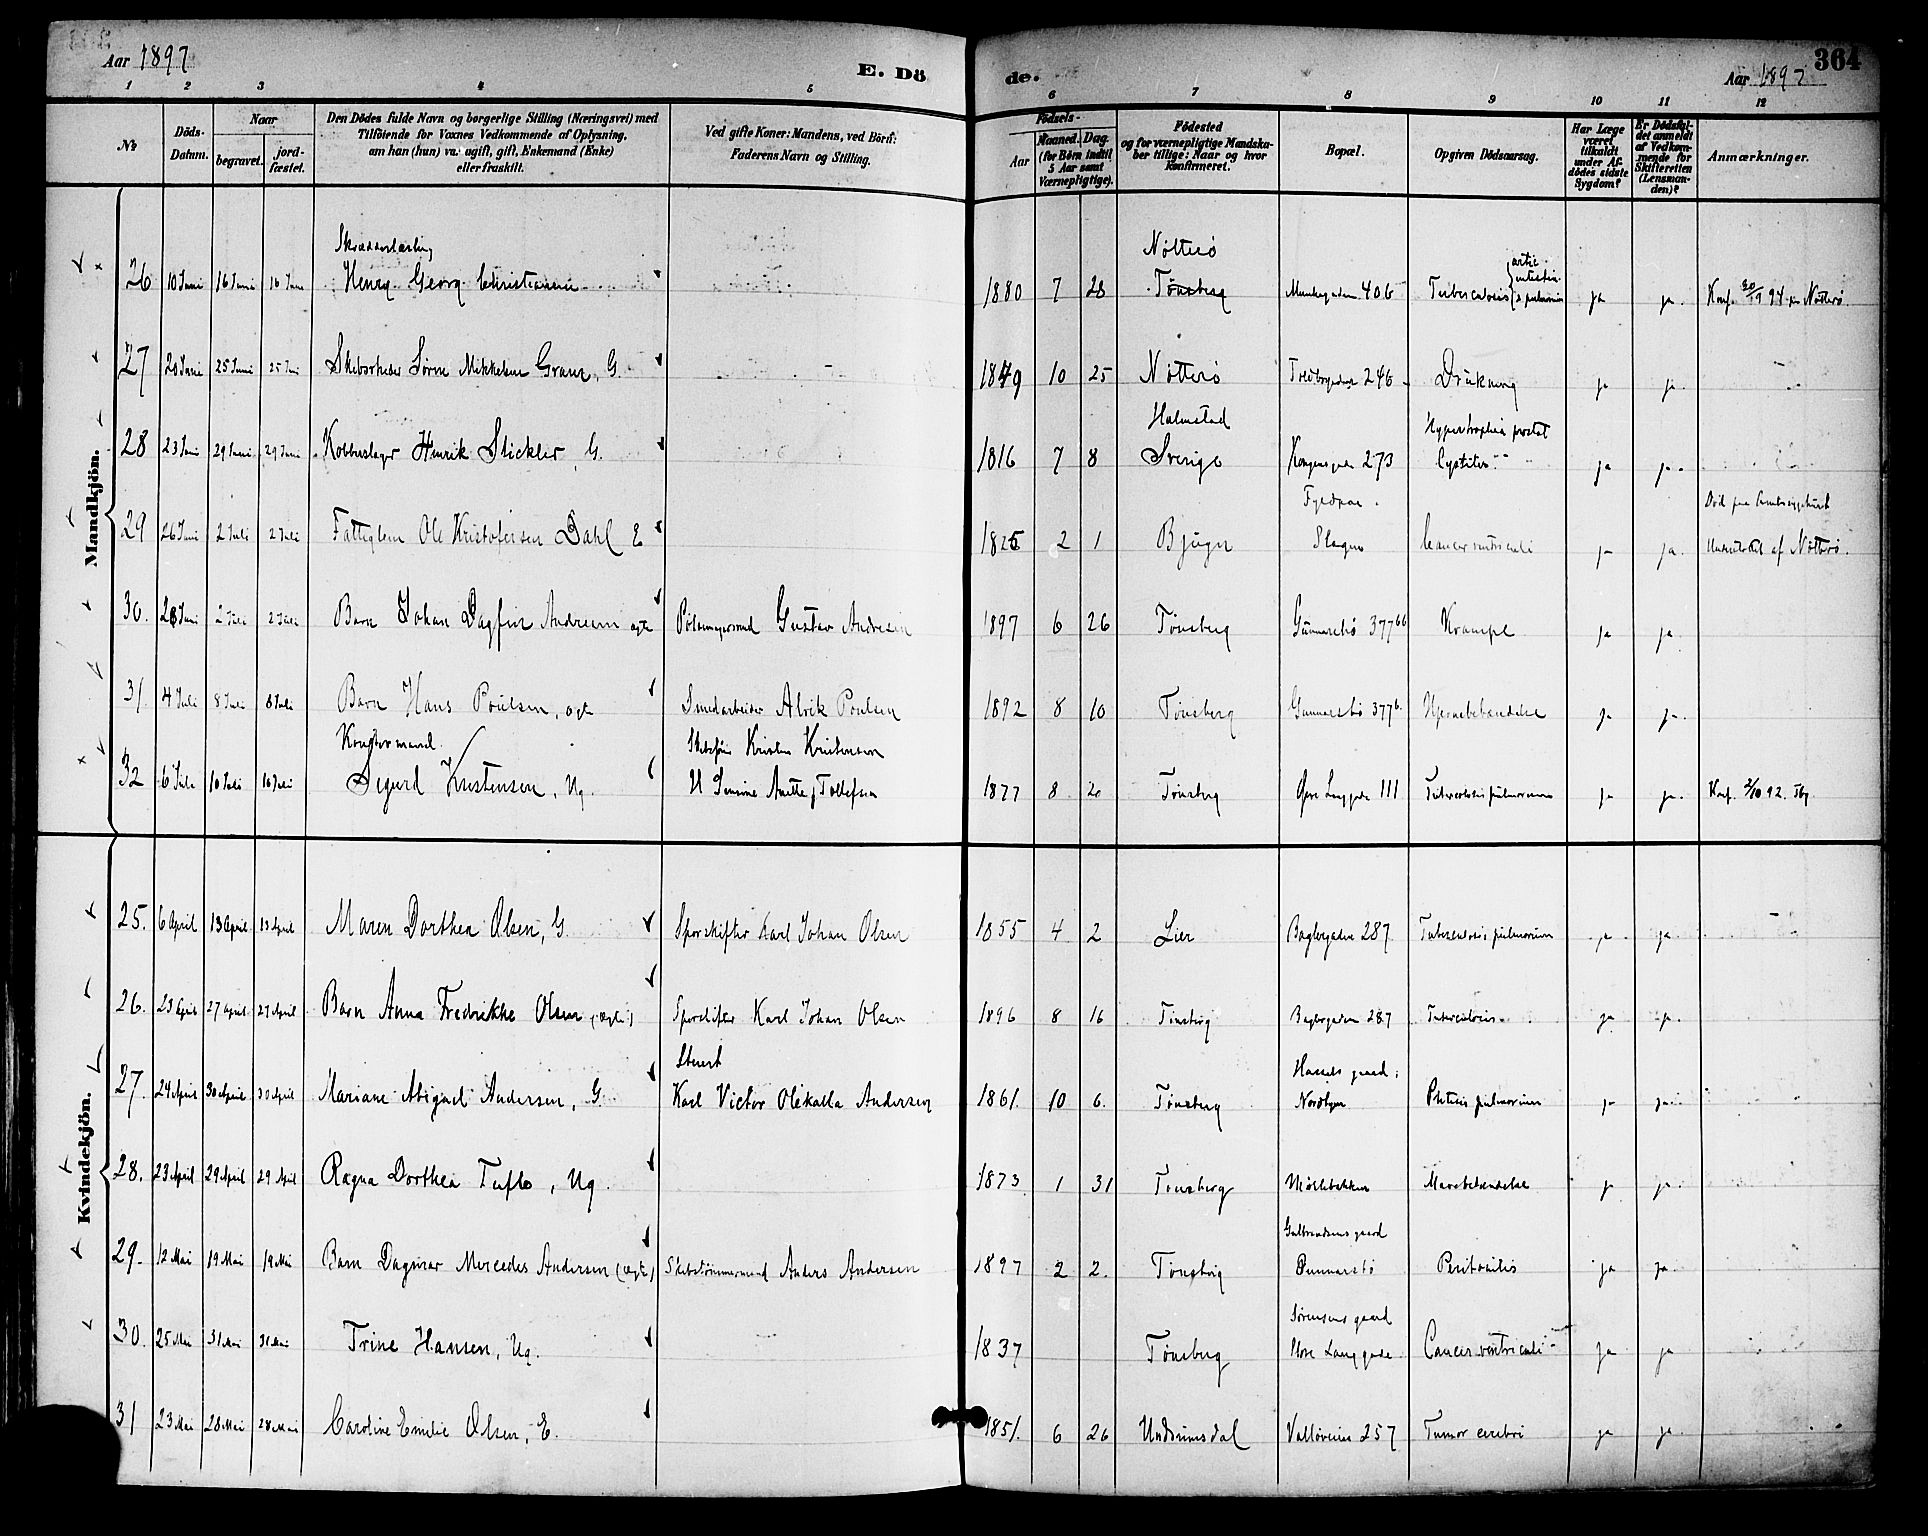 Aar 1897
E. Dö
de.
Aar 1897
364
1 2 3 4 5 6 7 8 9 10 11 12
No
Döds-Datum.
Naar
begravet.
jord-fæstet.
Den Dödes fulde Navn og borgerlige Stilling (Næringsvei) med
Tilföiende for Voxnes Vedkommende af Oplysning,
om han (hun) var ugift, gift, Enkemand (Enke)
eller fraskilt.
Ved gifte Koner: Mandens, ved Börn:
Faderens Navn og Stilling.
Födsels-
Aar
Maaned. Dag.
(for Börn indtil
5 Aar samt
Værnepligtige).
Födested
og for værnepligtige Mandska-
ber tillige: Naar og hvor
konfirmeret.
Bopæl.
Opgiven Dödsaarsag.
Har Læge
været
tilkaldt
under Af-
dödes sidste
Sygdom?
Er Dödsfal-
det anmeldt
af Vedkom-
mende for
Skifteretten
(Lensman-
den)?
Anmærkninger.
Mandkjön.
Skrædderlærling Nøtterø
26 10 Juni 16 Juni 16 Juni Henry Georg Christiansen 1880 7 28 Tønsberg Munkegaden 406 Tuberculosis pulmonis ja ja. Konf. 30/9 94 Nøtterø
27 20 Juni 25 Juni 25 Juni Skibsrheder Sørne Mikkelsen Gran, G. 1849 10 25 Nøtterø 246 Drukning ja ja.
Halmstad Hypertrophia prostat
28 23 Juni 29 Juni 29 Juni Kobberslager Henrik Stickler, G. 1816 7 8 Sverige Kongensgade 273 Cystitis ja ja.
29 26 Juni 2 Juli 2 Juli Fattiglem Ole Kristofersen Dahl E 1825 2 1 Bjugn Slagen Cancer ventriculi ja ja. af Nøtterø.
30. 28 Juni 2 Juli 2 Juli Barn Johan Dagfin Andresen ægte Pølsemagersvend Gustav Andresen 1897 6 26 Tønsberg Gunnarsbø 377 66 Krampe ja ja.
31. 4 Juli 8 Juli 8 Juli Barn Hans Poulsen, ægte Smedarbeider Alrik Poulsen 1892 8 10 Tønsberg Gunnarsbø 377 6. Hjernebetændelse ja ja.
Kontormand. Skibsfører Kristen Kristensen
32 6 Juli 10 Juli 10 Juli Sigurd Kristensen, Ug. Anette f Tollefsen 1877 8 20 Tønsberg Øvre Langgade 111 Tuberculosis pulmonum ja ja. Konf. 2/10 92. Tbg
Kvindekjön.
25. 6 April 13 April 13 April Maren Dorthea Olsen, G. Sporskifter Karl Johan Olsen 1855 4 2 Lier Baglergaden 287 Tuberculosis pulmonum ja ja.
26. 23 April 27 April 27 April Barn Anna Fredrikke Olsen (ægte) Sporskifter Karl Johan Olsen 1896 8 16 Tønsberg Baglergaden 287 Tuberculosis ja ja.
Stuert Hassels gaard,
27. 24 April 30 April 30 April Mariane Abigael Andersen, G. Karl Victor Olekalla Andersen 1861 10 6. Tønsberg Nordbyen Phtisis pulmonum ja ja.
28. 23 April 29 April 29 April Ragna Dorthea Tufto, Ug. 1873 1 31 Tønsberg Møllebakken Mavebetændelse ja ja.
Gulbrandsens gaard
29. 12 Mai 19 Mai 19 Mai Barn Dagmar Mercedes Andersen (ægte) Skibstømmermand Anders Andersen 1897 2 2. Tønsberg Gunnarsbø Peritonitis ja ja.
Sørensens gaard
30. 25 Mai 31 Mai 31 Mai Trine Hansen, Ug. 1837 Tønsberg Store Langgade Cancer ventriculi ja ja
31 23 Mai 28 Mai 28 Mai Caroline Emilie Olsen, E. 1851. 6 26 Undrumsdal Valløveien 257 Tumor cerebri ja ja.